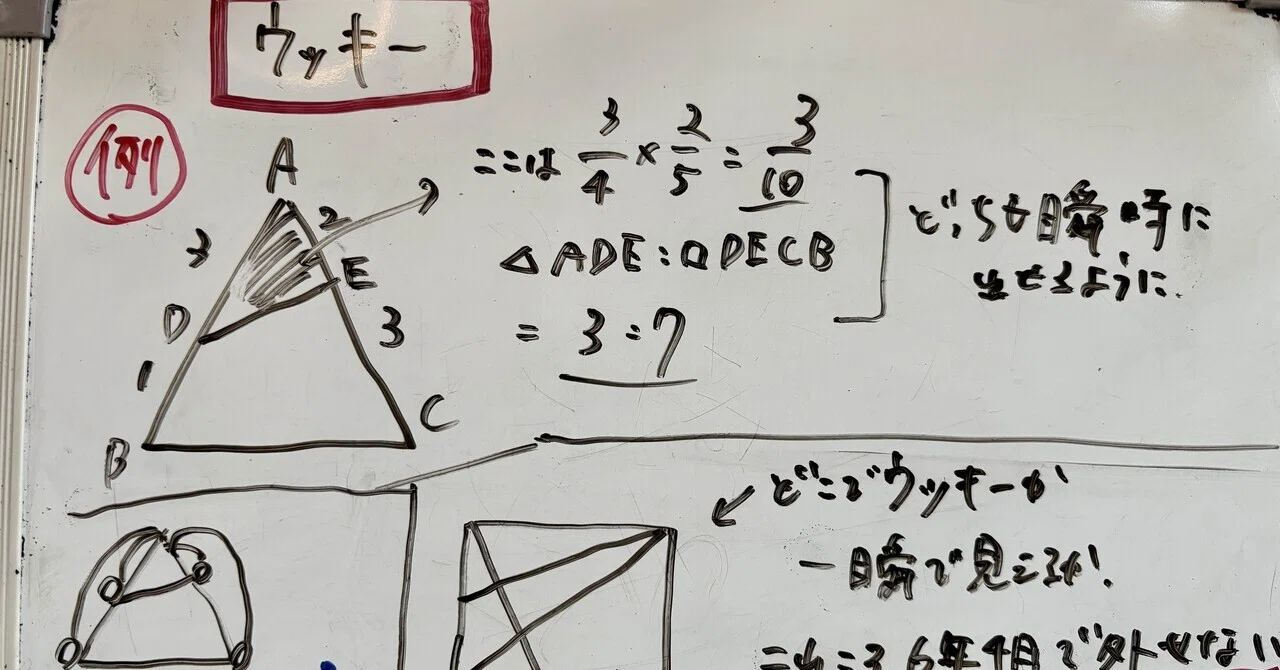 ウッキー
例
A
2
3
E
D
3
1
B
C
ここは 3/4 × 2/5 = 3/10
△ADE:□DECB
= 3:7
どっちも瞬時に
出せるように.
どこでウッキーが
一瞬で見えるか!
6年4月で外せない